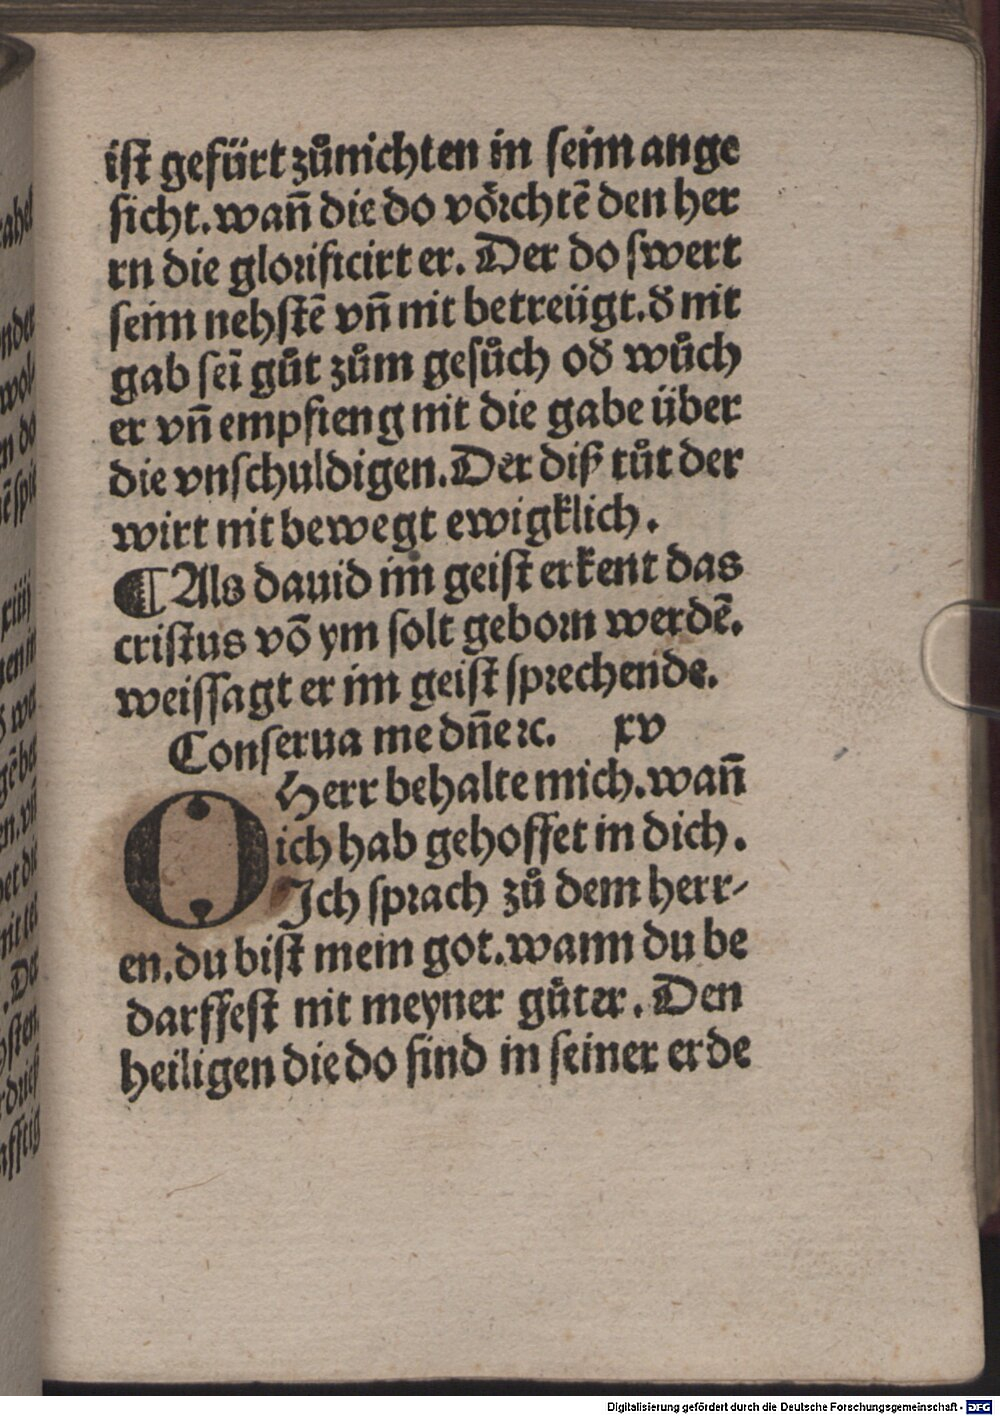 ist gefürt zůnichten in seim ange
sicht. wañ die do vörchtē den her
rn die glorificirt er. Der do swert
seim nehstē vñ nit betreügt. đ nit
gab seī gůt zům gesůch ođ wůch
er vñ empfieng nit die gabe über
die vnschuldigen. Der diß tůt der
wirt nit bewegt ewigklich.
¶ Als dauid im geist erkent das
cristus vō ym solt geborn werdē.
weissagt er im geist sprechende.
Conserua me dñe ⁊c. xv
O Herr behalte mich. wañ
ich hab gehoffet in dich.
Ich sprach zů dem herr-
en. du bist mein got. wann du be
darffest nit meyner güter. Den
heiligen die do sind in seiner erde
Digitalisierung gefördert durch die Deutsche Forschungsgemeinschaft - DFG